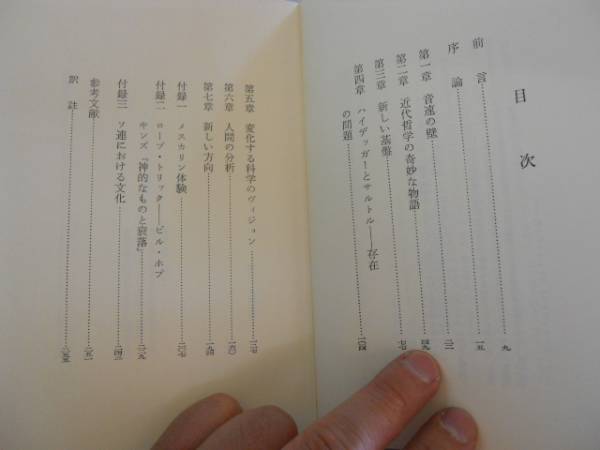 目次
前言……九
序論……一五
第一章 音速の壁……二二
第二章 近代哲学の奇妙な物語……四九
第三章 新しい基盤……
第四章 ハイデッガーとサルトル――存在
の問題……一〇四
第五章 変化する科学のヴィジョン……
第六章 人間の分析……一五〇
第七章 新しい方向……一九四
付録一 メスカリン体験……
付録二 ロープ・トリック――ビル・ホプ
キンズ「神的なものと衰落」……
付録三 ソ連における文化……二四三
参考文献……二五一
訳註……二五五